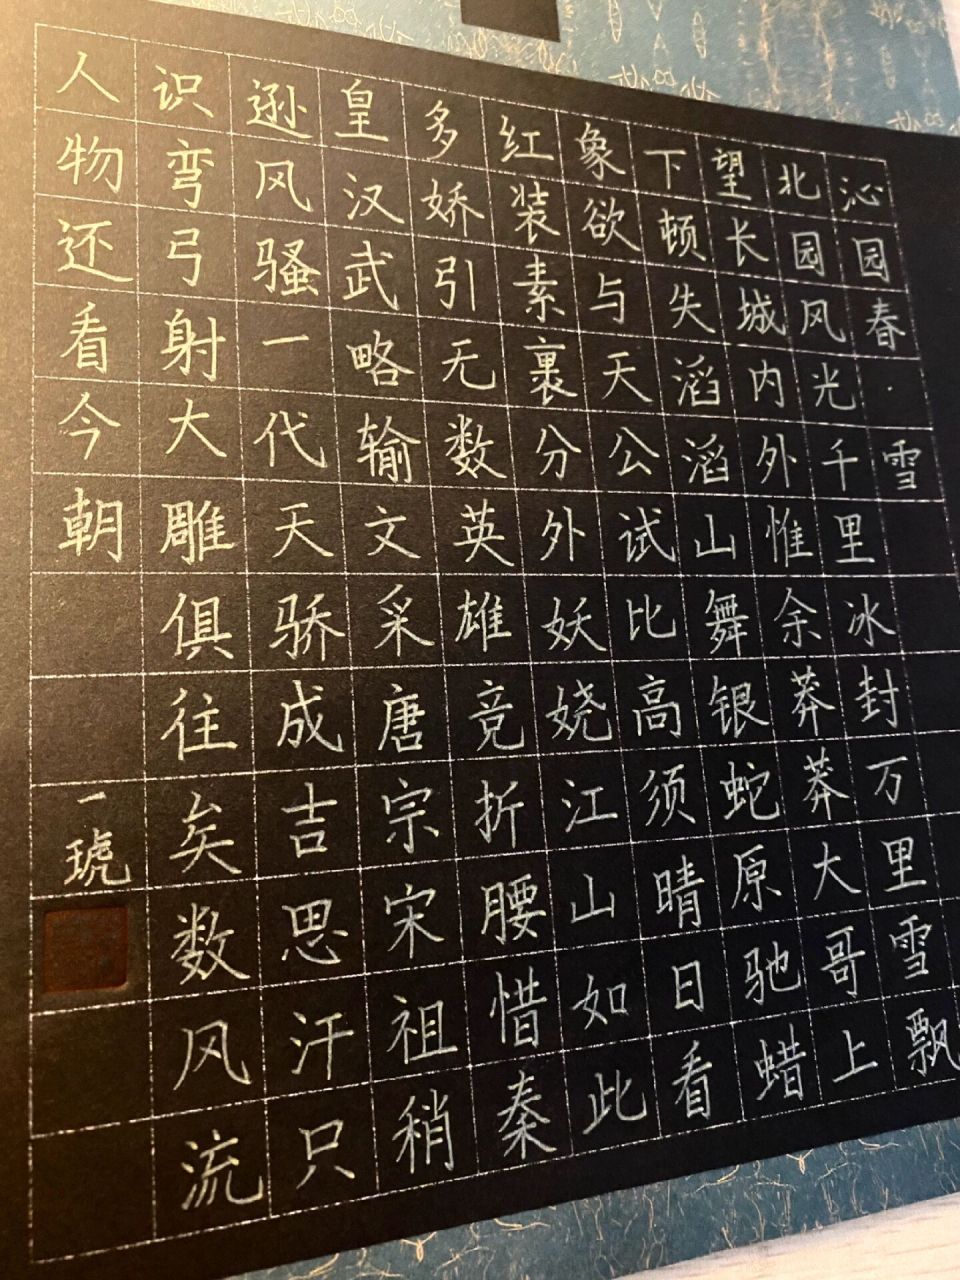 沁园春·雪
北园风光千里冰封万里雪飘
望长城内外惟余莽莽大哥上
下顿失滔滔山舞银蛇原驰蜡
象欲与天公试比高须晴日看
红装素裹分外妖娆江山如此
多娇引无数英雄竞折腰惜秦
皇汉武略输文采唐宗宋祖稍
逊风骚一代天骄成吉思汗只
识弯弓射大雕俱往矣数风流
人物还看今朝
一琥